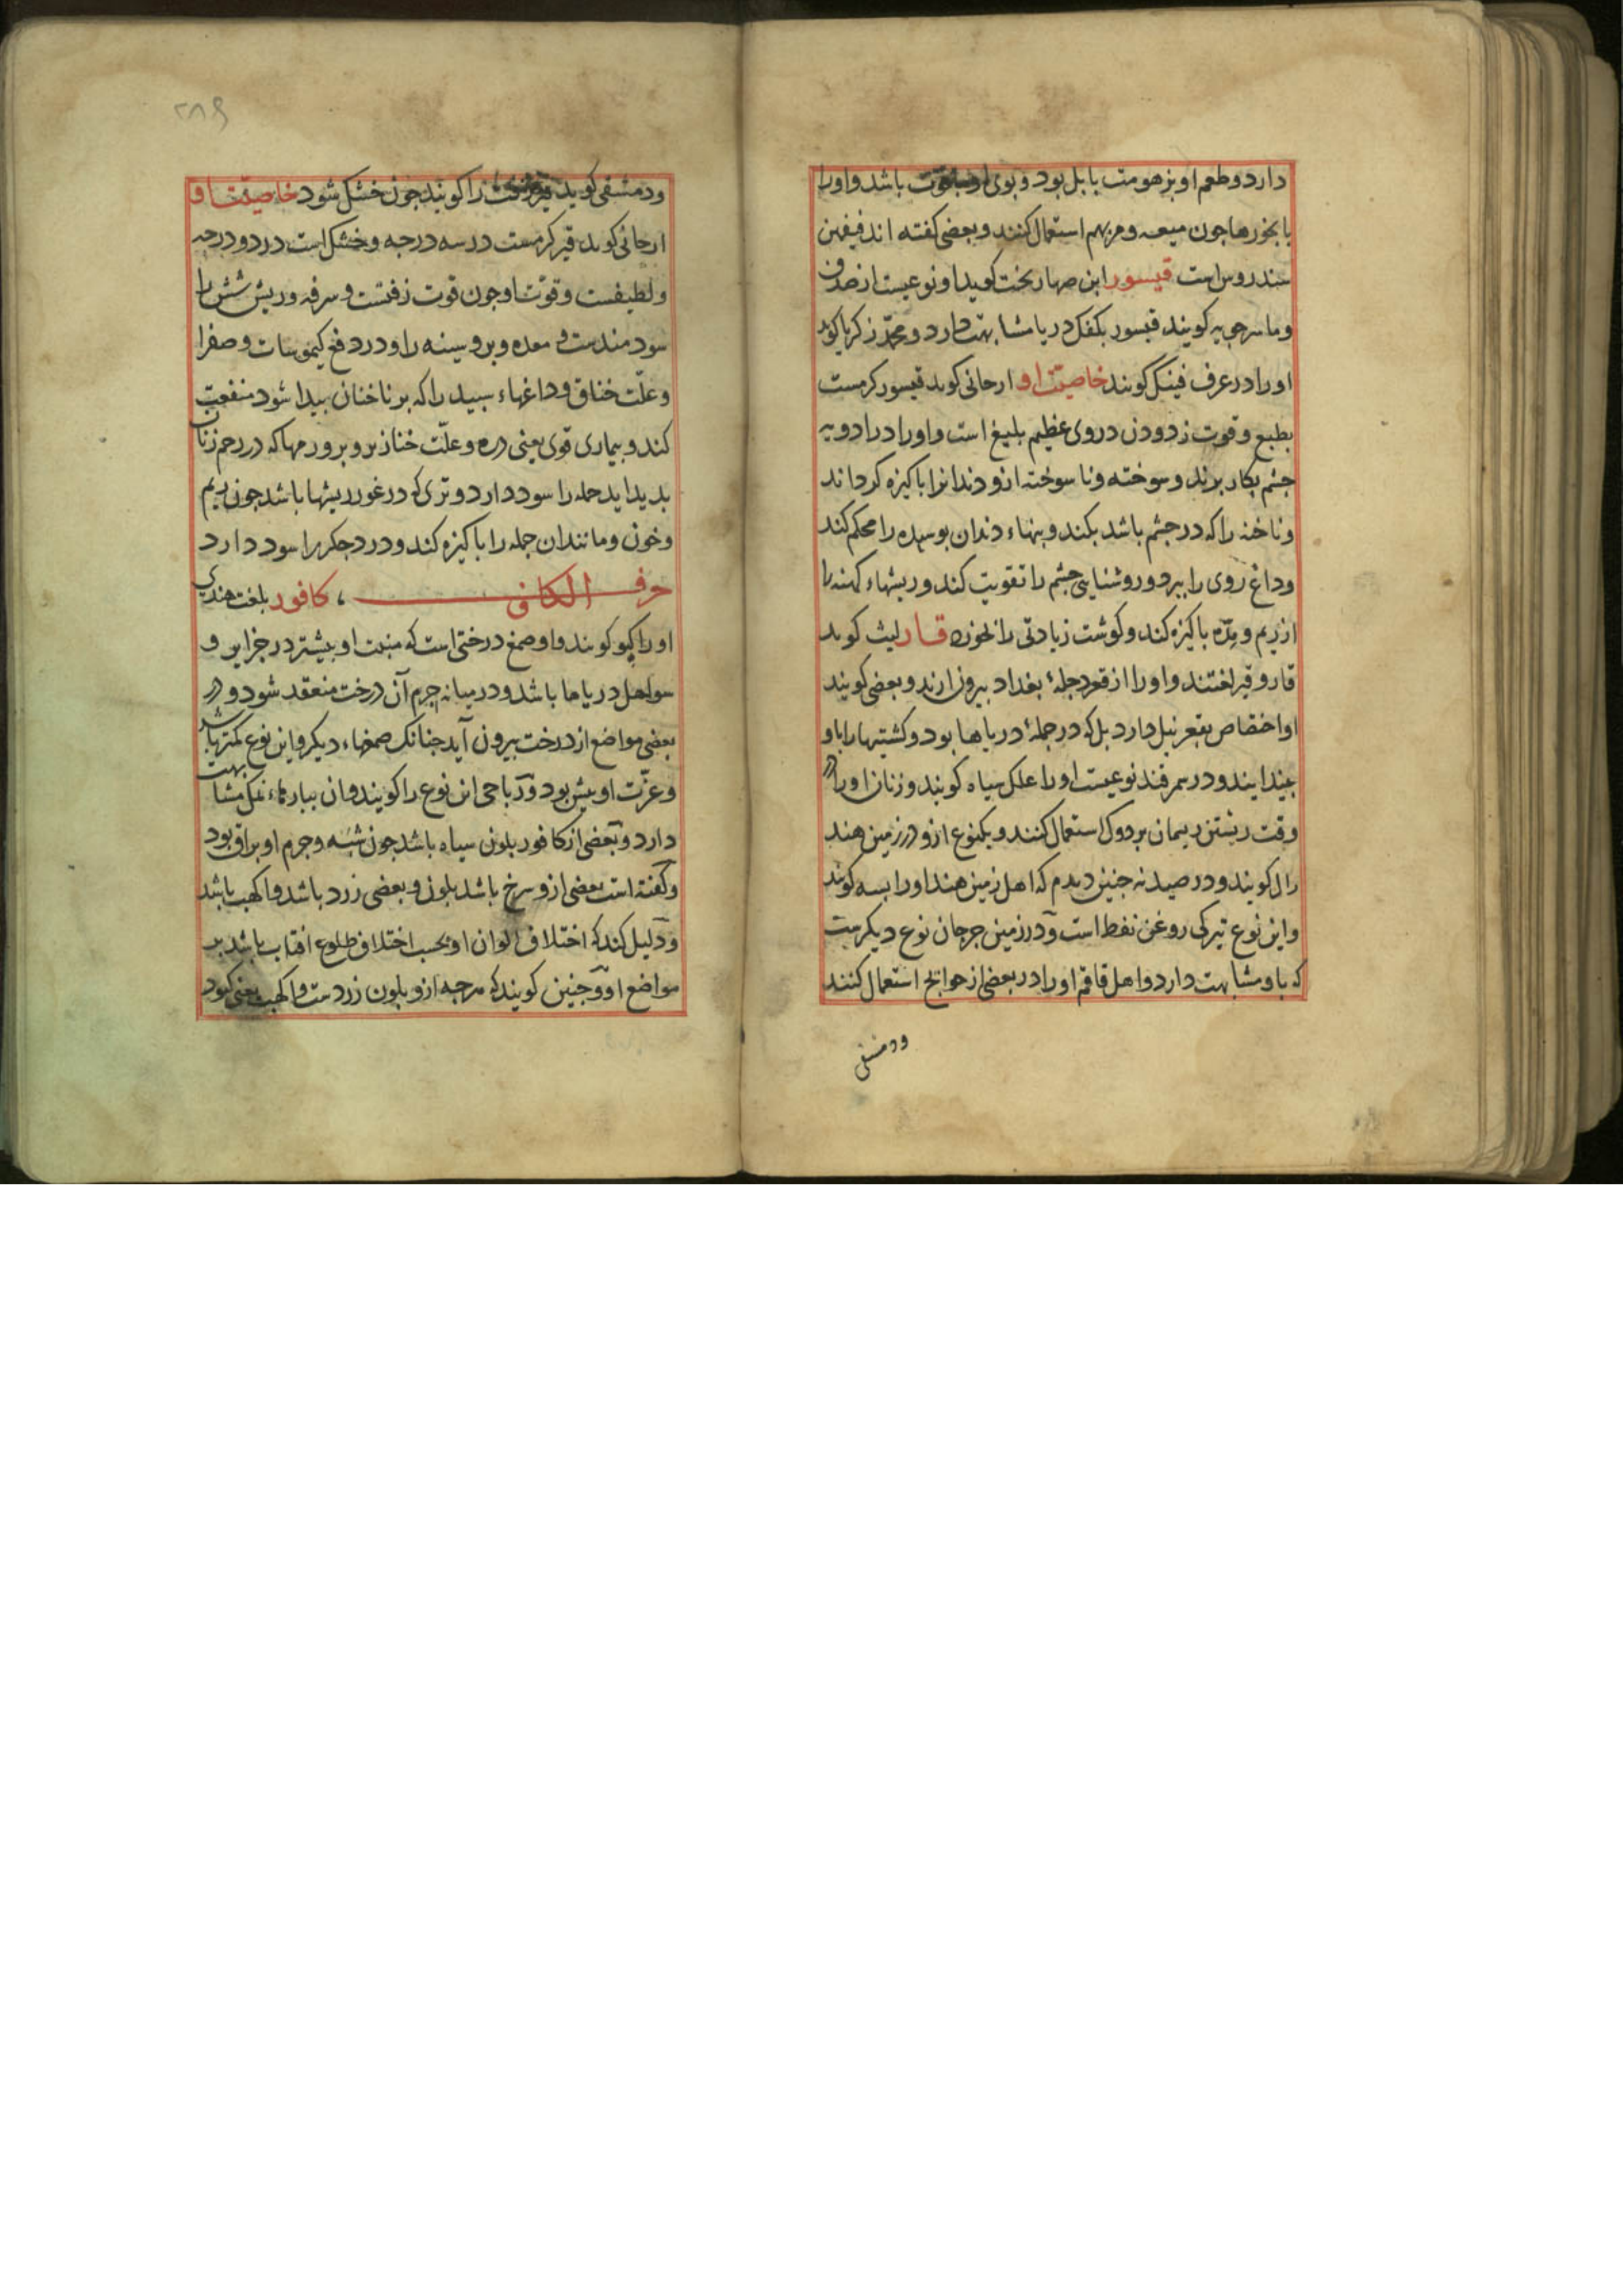 دارد و طعم او بزهومت بابل بود و بوی او باشد و او را
با بخورها جون میعه و مریهم استعمال کنند و بعضی کفته اند فیفهن
سندروس است قیسور ابن صهاربخت کوید او نوعیست از صدف
و ماسرجویه کویند قیسور بکفک دریا مشابهت دارد و محمد زکریا کوید
او را در عرف فینک کویند خاصیّت او ارجانی کوید قیسور کرمست
بطبع و قوت زدودن در وی عظیم بلیغ است و او را در ادویه
جشم بکار برند و سوخته و ناسوخته ازو دندانرا باکیزه کرداند
و ناخنه را که در جشم باشد بکند و بنهاء دندان بوسیده را محکم کند
و داغ روی را ببرد و روشنایی جشم را تقویت کند و ریشهاء کهنه را
از ریم و مِدّه باکیزه کند و کوشت زیادتی را بخورد قار لیث کوید
قار و قیر لغتند و او را از قعر دجلهٔ بغداد بیرون ارند و بعضی کویند
او اختصاص بقعر نیل دارد بل که در جملهٔ دریاها بود و کشتیها را باو
بیندایند و در سمرقند نوعیست او را علک سیاه کویند و زنان او را در
وقت رشتن ریمان بر دوک استعمال کنند و یکنوع ازو در زمین هند
رال کویند و در صیدنه جنین دیدم که اهل زمین هند او را بسه کویند
و این نوع تیرکی روغن نفط است و در زمین جرجان نوع دیکرست
که باو مشابهت دارد و اهل قاقم او را در بعضی از حوایج استعمال کنند
ودمشقی
۲۸۹
ودمشقی کوید را کویند جون خشک شود خاصیّت او
ارجانی کوید قیر کرمست در سه درجه و خشک است در دو درجه
و لطیفست و قوّت او جون قوت زفتست و سرفه و ریش شش را
سودمندست و معده و برو سینه را و درد فع کیموسات و صفرا
و علّت خناق و داغهاء سبید را که بر ناخنان بیدا شود منفعت
کند و بیماری قوی یعنی دره و علّت خنازیر و بر ورمها که در رحم زنان
بدید اید جمله را سود دارد و تری که در غور ریشها باشد جون ریم
و خون و مانندان جمله را باکیزه کند و درد جکر را سود دارد
حرف الکاف ، کافور بلغت هندی
او را کپو کویند و او صمغ درختی است که منبت او بیشتر در جزایر و
سواحل دریاها باشد و در میانه جرم آن درخت منعقد شود و در
بعضی مواضع از درخت بیرون آید جنانک صمغهاء دیکر و این نوع کمتر باشد
و عزّت او بیش بود و رباحی این نوع را کویند و ان ببارهاء نمک مشابهت
دارد و بعضی از کافور بلون سیاه باشد جون شبه و جرم او براق بود
و کفته است بعضی ازو سرخ باشد بلون و بعضی زرد باشد و اکهب باشد
و دلیل کند که اختلاف الوان او بحسب اختلاف طلوع افتاب باشد بر
مواضع او و جنین کویند که هرجه ازو بلون زردست و اکهب یعنی کبود